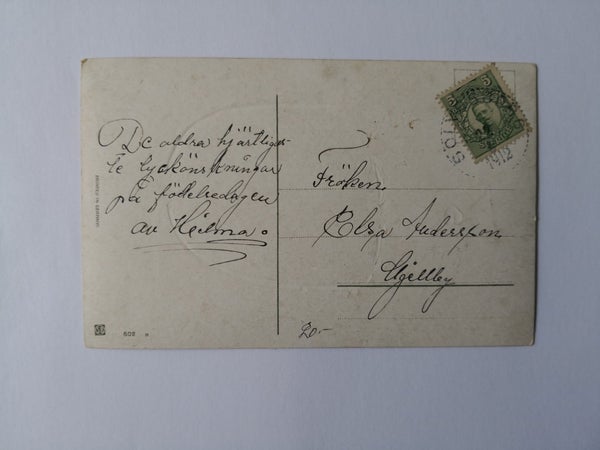 De aldra hjärtligas-
te lyckönskningar
på födelsedagen
av Hilma.
Fröken
Elsa Andersson
20.-
602
1912
5